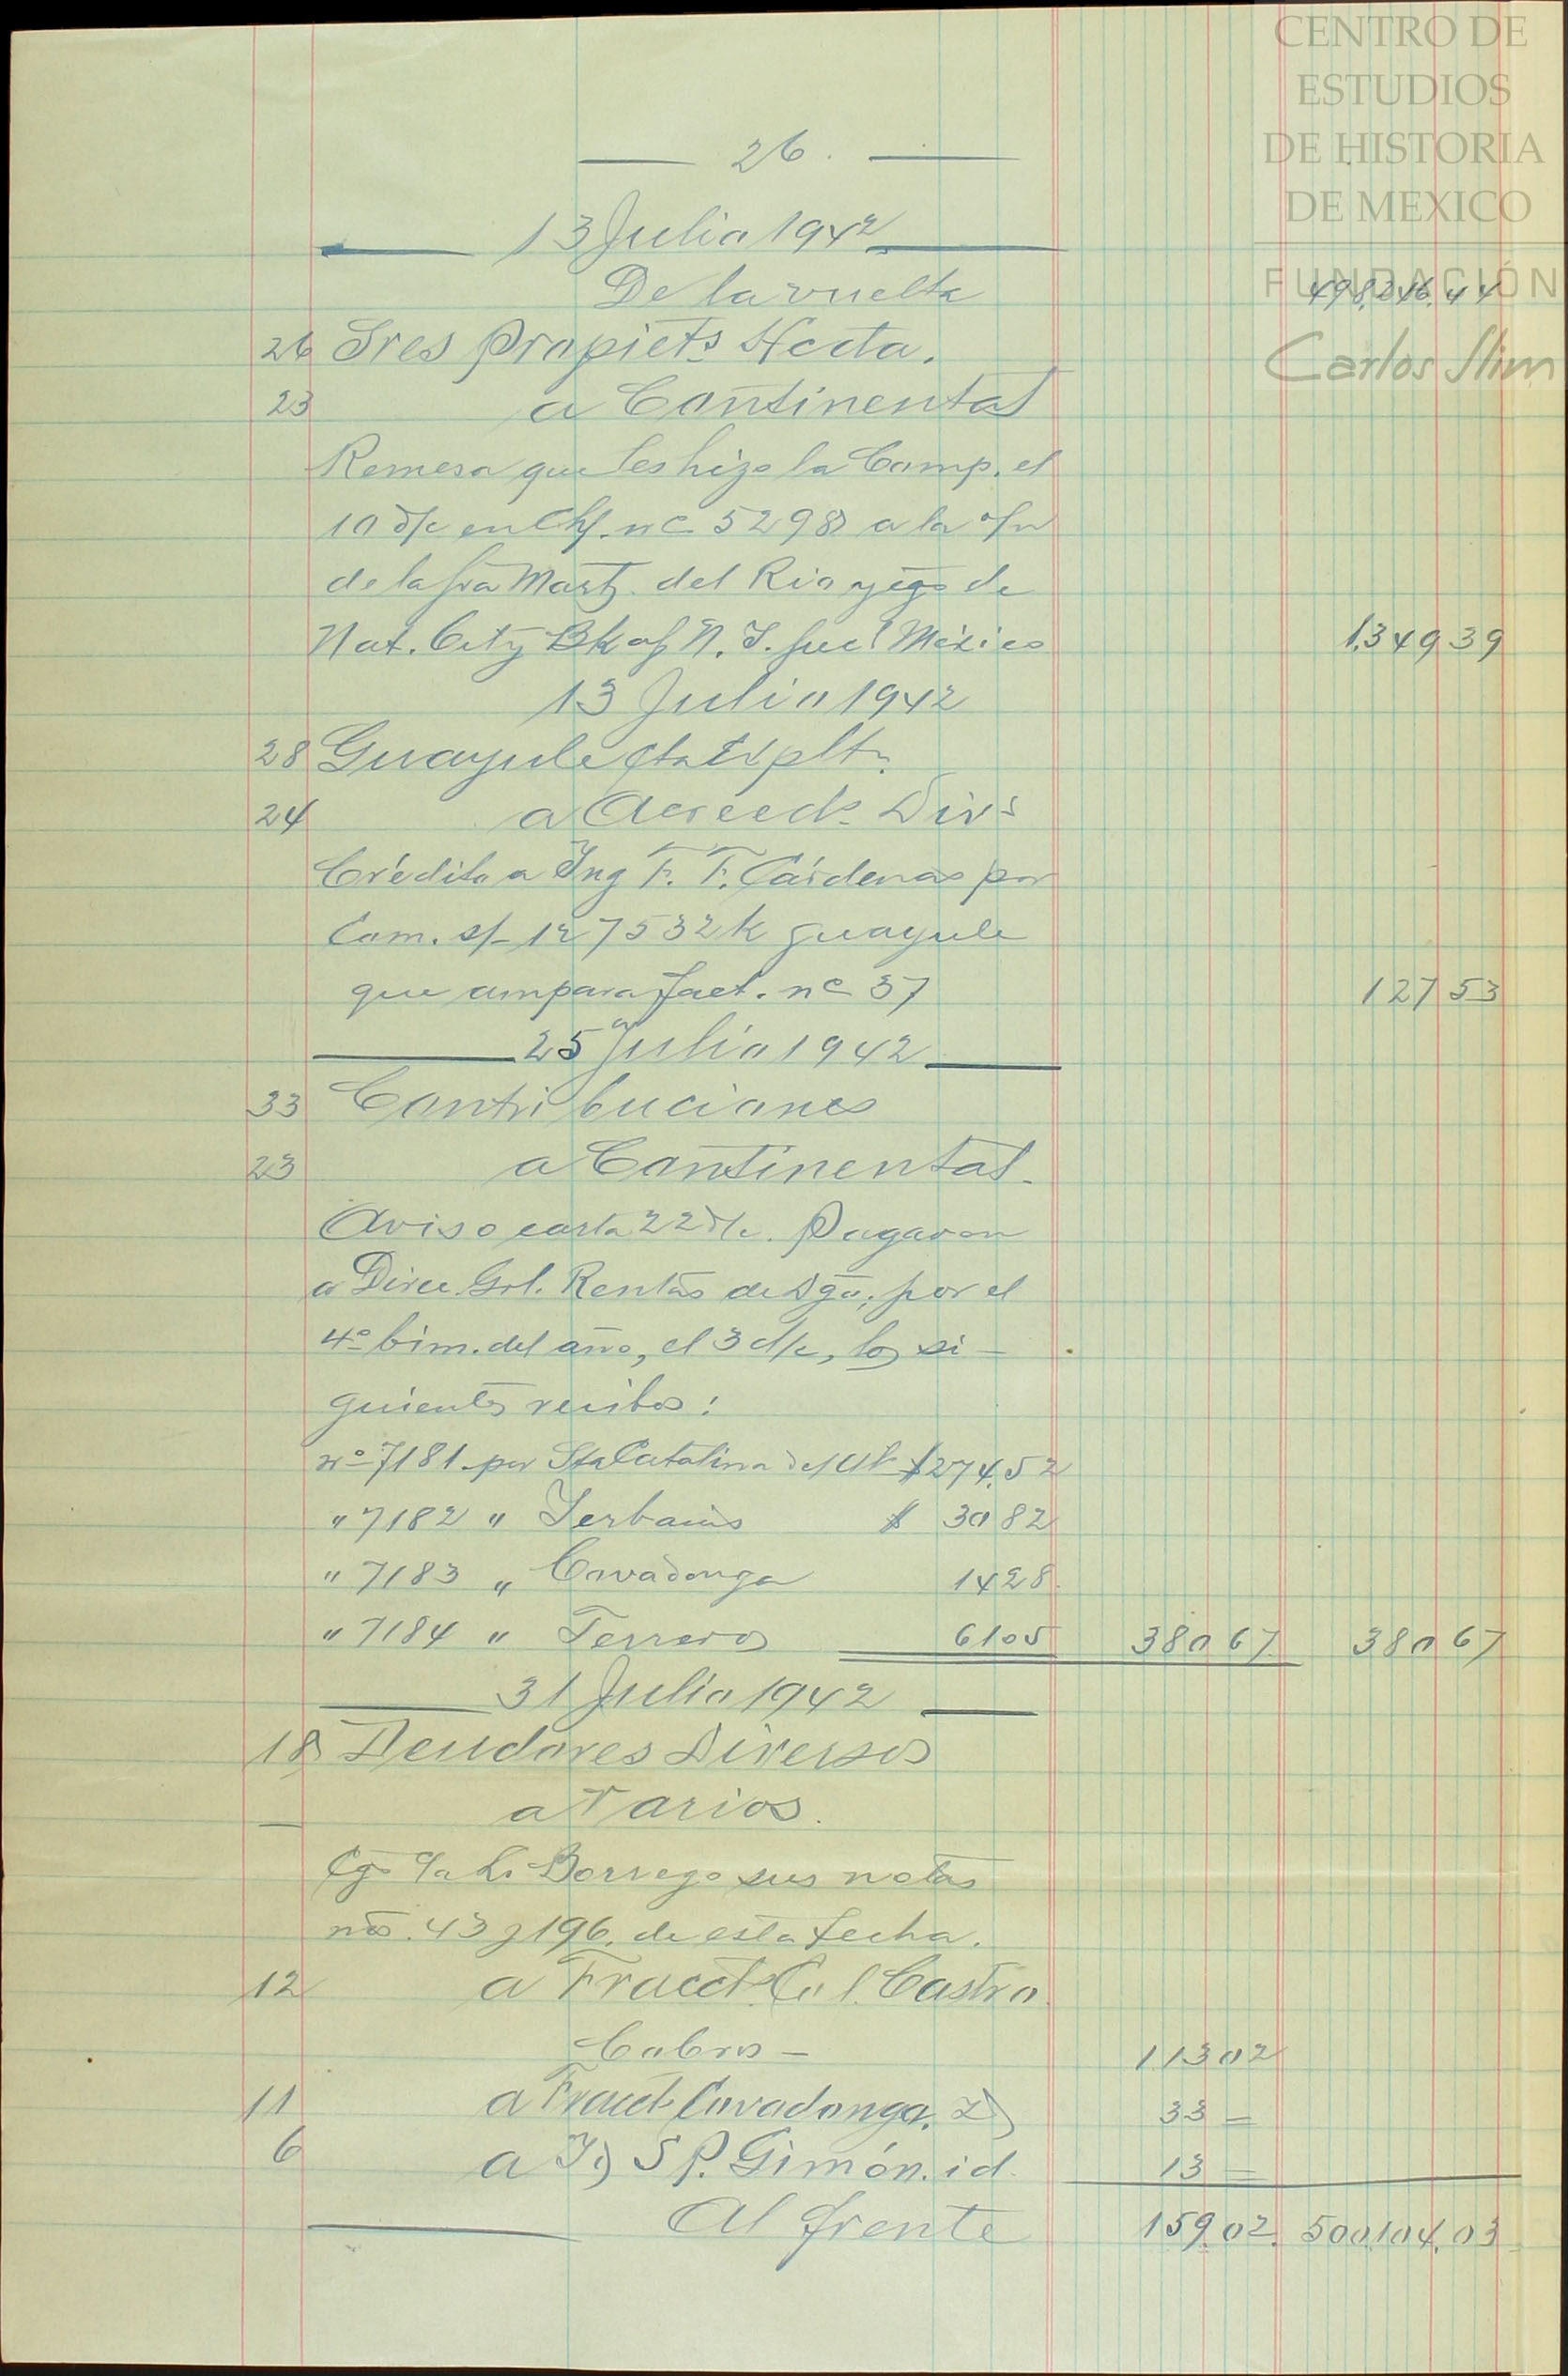 CENTRO DE
ESTUDIOS
DE HISTORIA
DE MEXICO
FUNDACIÓN
Carlos Slim
26.
13 Julio 1942
De la vuelta 498,246.44
26 Sres Propiets. Hcda.
23 a Continental
Remesa que les hizo la Comp. el
10 d/c en Ch/. nº 5298 a la o/n
de la Sra Martz. del Rio y cgo de
Nat. City Bk of N. Y. Suc! México 1.349 39
13 Julio 1942
28 Guayule Cta Explt.
24 a Acreeds. Divs
Crédito a Ing F. F. Cárdenas por
Com. s/- 127532 k guayule
que ampara fact. nº 37 127 53
25 Julio 1942
33 Contribuciones
23 a Continental.
Aviso carta 22 d/c. Pagaron
a Direc. Grl. Rentas de Dgo, por el
4º bim. del año, el 3 d/c, los si-
guientes recibos:
nº 7181. por Sta Catalina del $274.52
" 7182 " Yerbanis $ 30 82
" 7183 " Covadonga 14 28
" 7184 " Terreros 61 05 380 67 380 67
31 Julio 1942
18 Deudores Diversos
a Varios.
Cgo Borrego sus notas
nos. 43 y 196. de esta fecha.
12 a Fracct. Col. Castro
Cobros - 113 02
11 a Fracct. Covadonga. 33 =
6 a S P. Gimón. id. 13 =
Al frente 159.02. 500.104.03